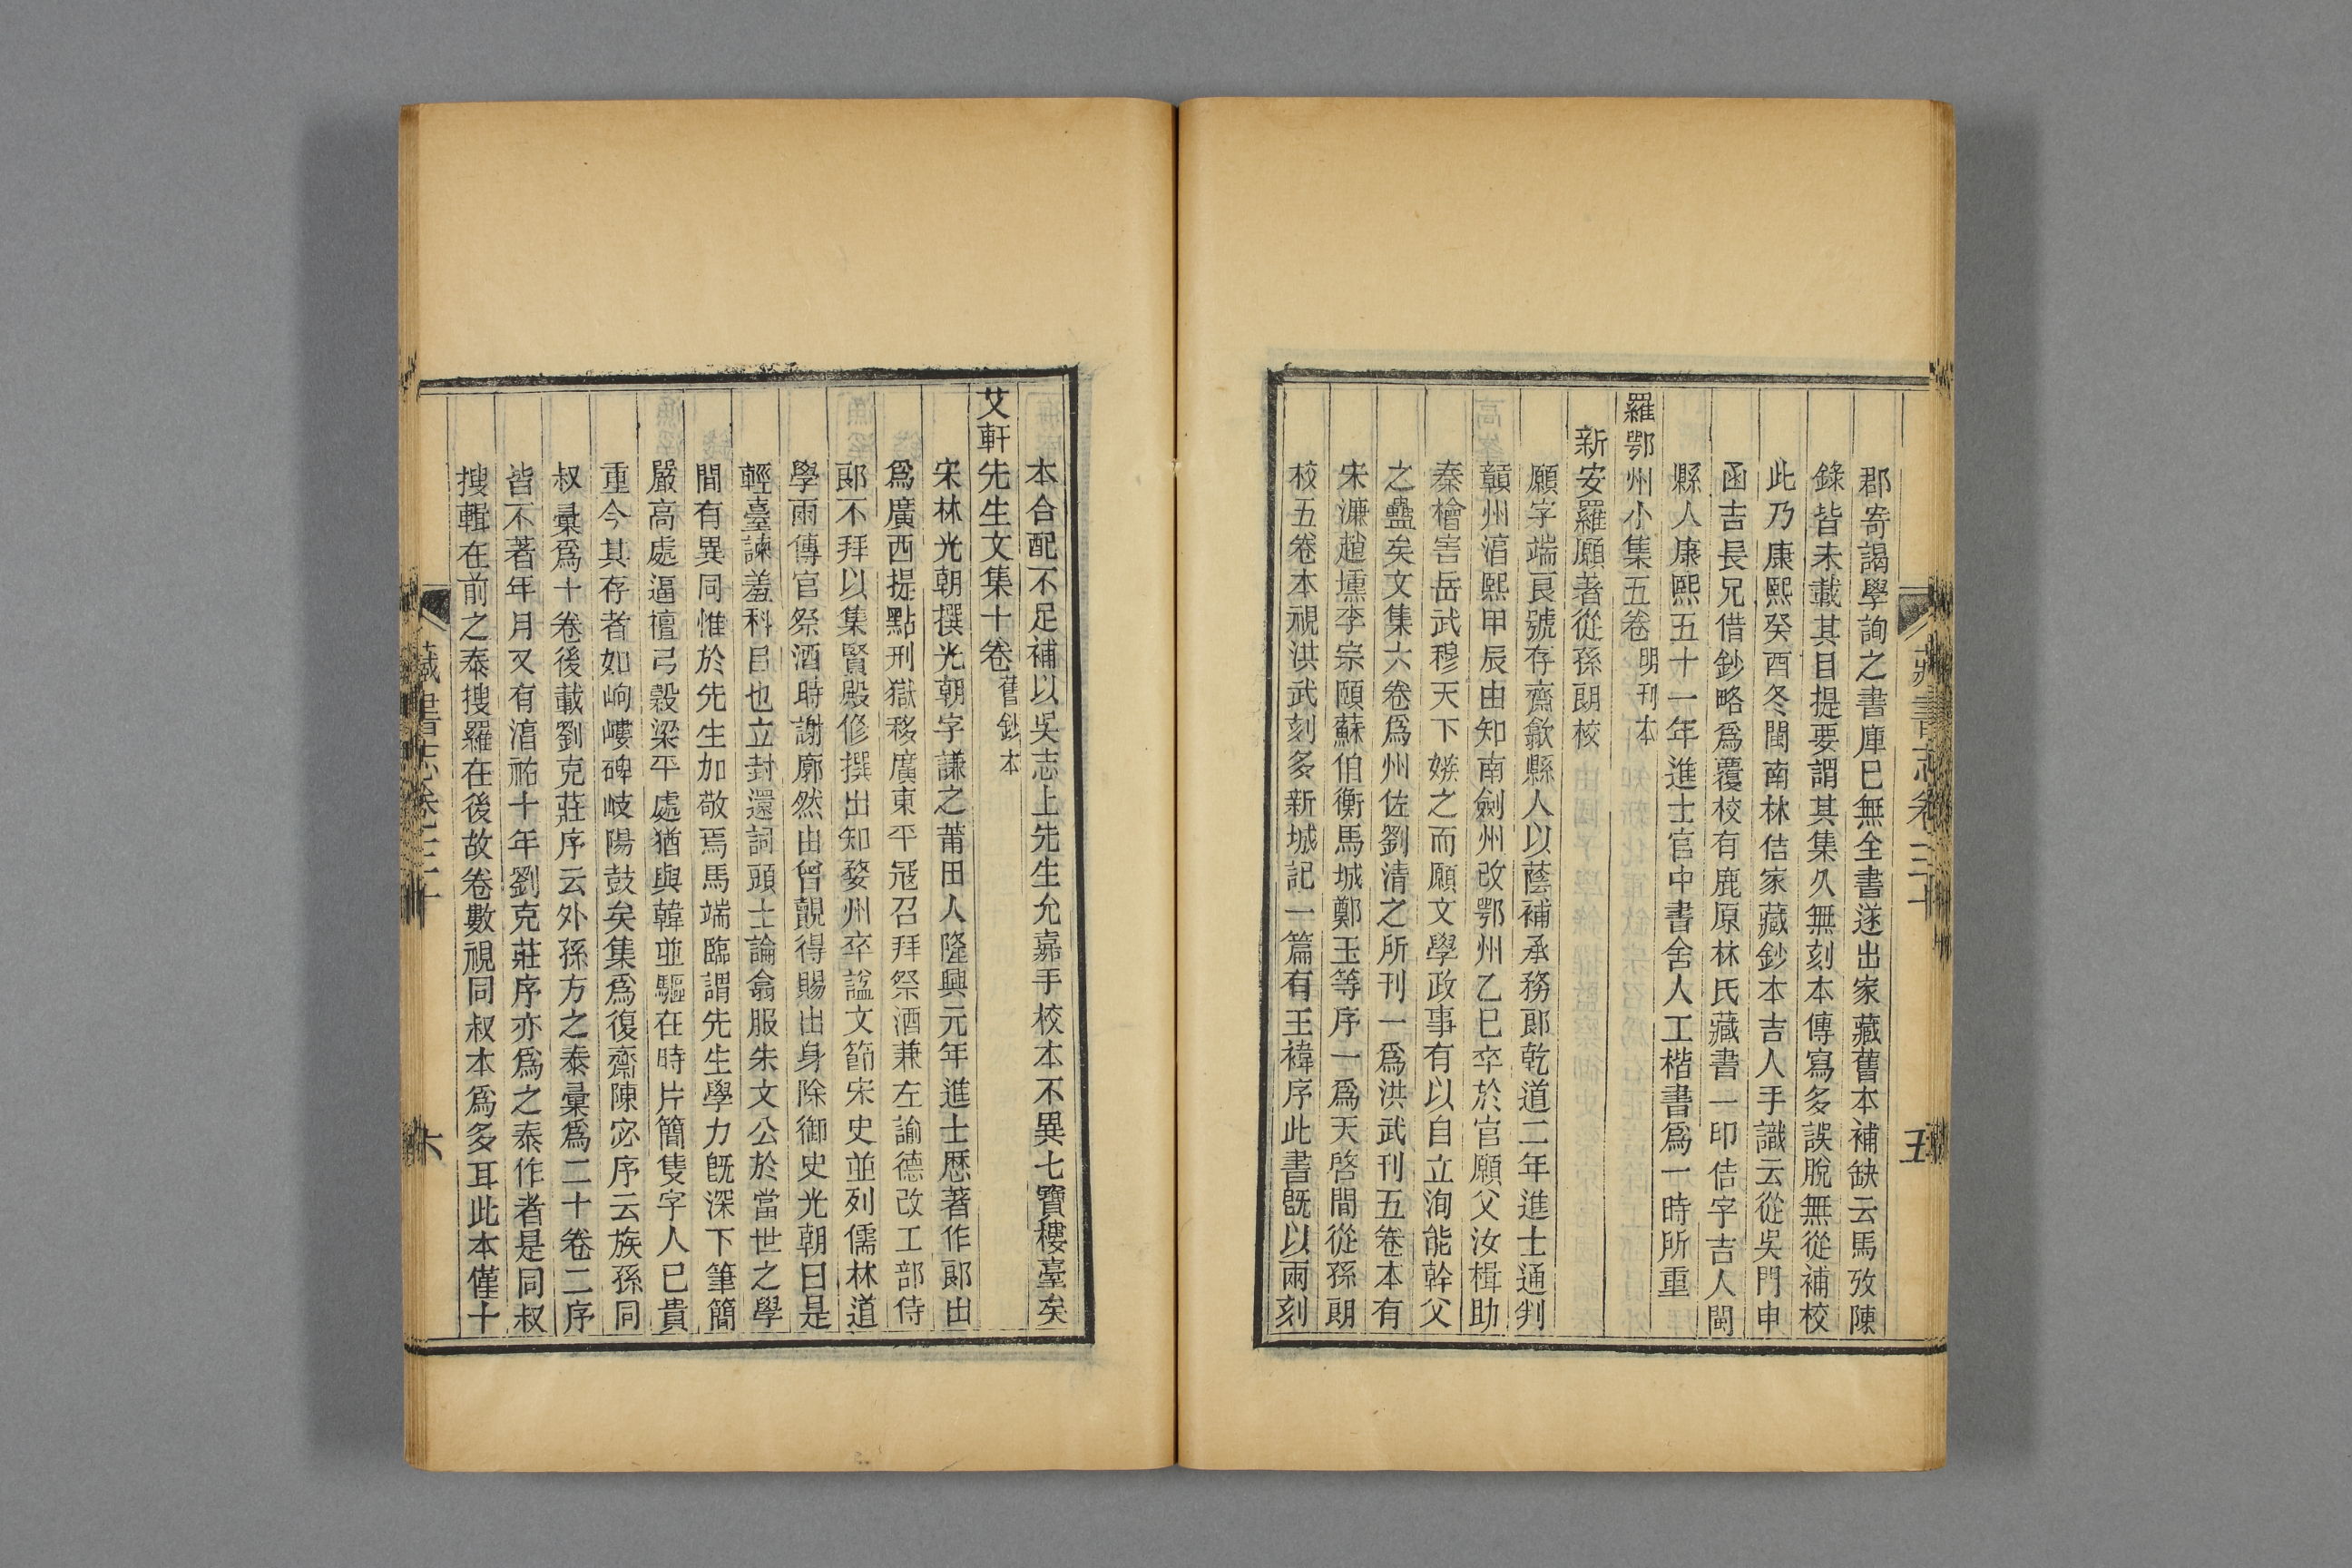 藏書志卷三十
五
郡寄謁學詢之書庫巳無全書遂出家藏舊本補缺云馬攷陳
錄皆未載其目提要謂其集久無刻本傳寫多誤脫無從補校
此乃康熙癸酉冬閩南林佶家藏鈔本吉人手識云從吳門申
函吉長兄借鈔略爲覆校有鹿原林氏藏書一印佶字吉人閩
縣人康熙五十一年進士官中書舍人工楷書爲一時所重
羅鄂州小集五卷明刊本
新安羅願著從孫朗校
願字端良號存齋歙縣人以蔭補承務郎乾道二年進士通判
贛州湻熙甲辰由知南劍州改鄂州乙巳卒於官願父汝楫助
秦檜害岳武穆天下嫉之而願文學政事有以自立洵能幹父
之蠱矣文集六卷爲州佐劉清之所刊一爲洪武刊五卷本有
宋濂趙壎李宗頤蘇伯衡馬城鄭玉等序一爲天啓間從孫朗
校五卷本視洪武刻多新城記一篇有王褘序此書旣以兩刻
本合配不足補以吳志上先生允嘉手校本不異七寶樓臺矣
艾軒先生文集十卷舊鈔本
宋林光朝撰光朝字謙之莆田人隆興元年進士歷著作郎出
爲廣西提點刑獄移廣東平冦召拜祭酒兼左諭德改工部侍
郎不拜以集賢殿修撰出知婺州卒諡文節宋史並列儒林道
學兩傳官祭酒時謝廓然由曾覿得賜出身除御史光朝曰是
輕臺諫羞科目也立封還詞頭士論翕服朱文公於當世之學
間有異同惟於先生加敬焉馬端臨謂先生學力旣深下筆簡
嚴高處逼檀弓穀梁平處猶與韓並驅在時片簡隻字人巳貴
重今其存者如岣嶁碑岐陽鼓矣集爲復齋陳宓序云族孫同
叔彙爲十卷後載劉克莊序云外孫方之泰彙爲二十卷二序
皆不著年月又有湻祐十年劉克莊序亦爲之泰作者是同叔
搜輯在前之泰搜羅在後故卷數視同叔本爲多耳此本僅十
藏書志卷三十
六